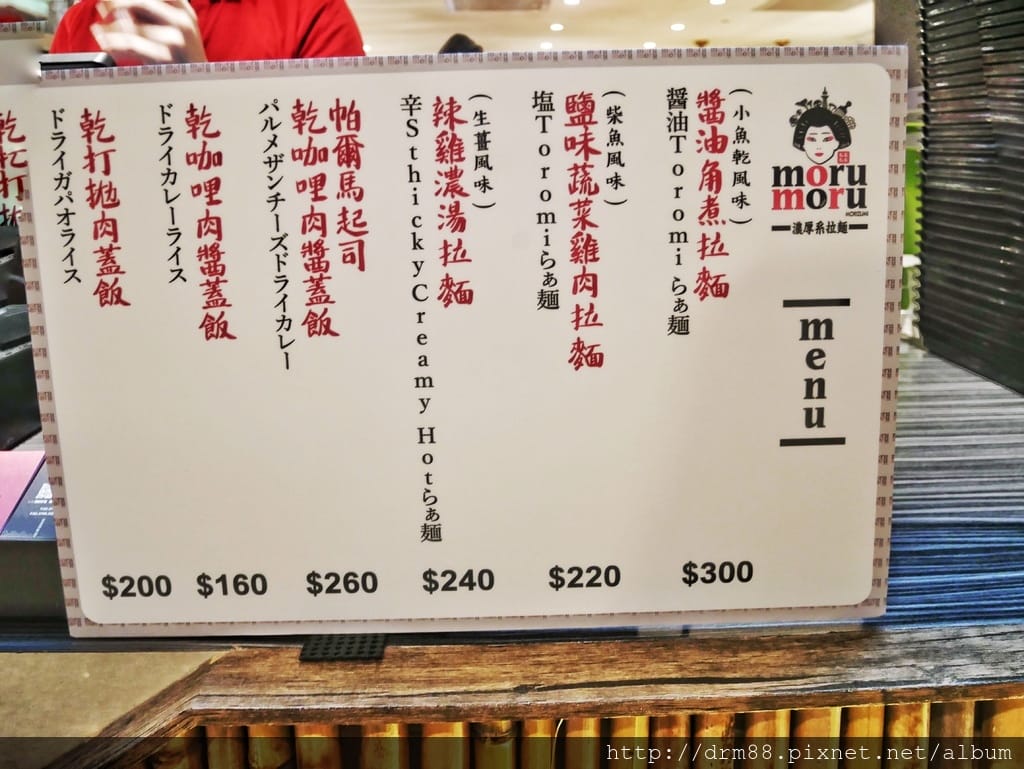 moru
moru
MORIZUMI
濃厚系拉麺
menu
(小魚乾風味)
醬油角煮拉麵
醤油Toromiらぁ麺
$300
(柴魚風味)
鹽味蔬菜雞肉拉麵
塩Toromiらぁ麺
$220
(生薑風味)
辣雞濃湯拉麵
辛SthickyCreamy Hotらぁ麺
$240
帕爾馬起司
乾咖哩肉醬蓋飯
パルメザンチーズドライカレー
$260
乾咖哩肉醬蓋飯
ドライカレーライス
$160
乾打拋肉蓋飯
ドライガパオライス
$200
http://drm88.pixnet.net/album